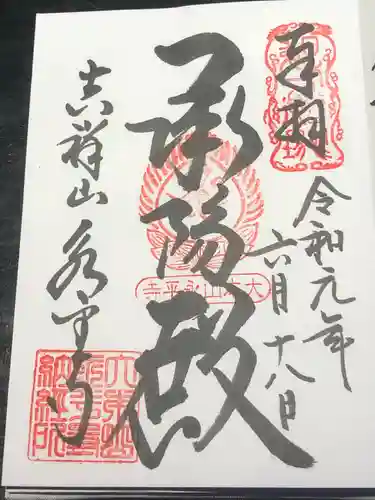 奉拝
令和元年
六月十八日
承陽殿
大本山永平寺
吉祥山永平寺
大本山
永平寺
納経所